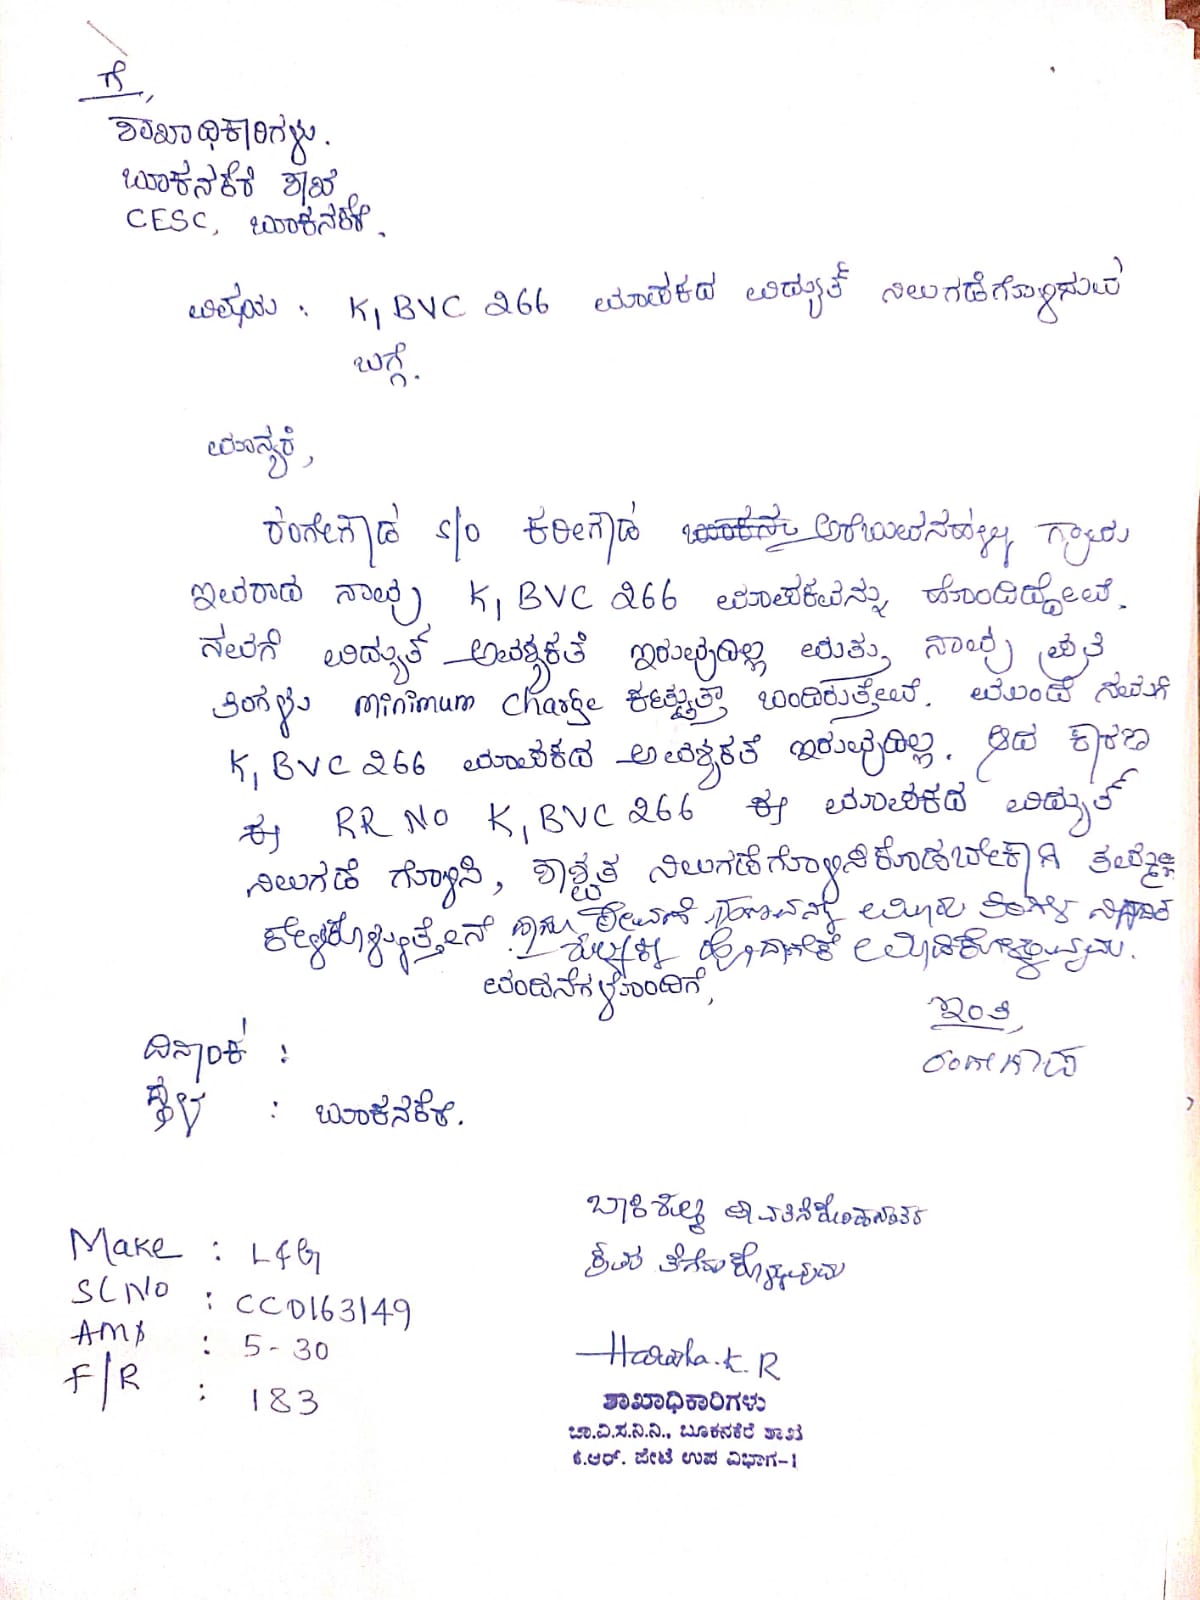 ಗೆ,
ಶಾಖಾಧಿಕಾರಿಗಳು.
ಬೂಕನಕೆರೆ ಶಾಖೆ
CESC, ಬೂಕನಕೆರೆ.
ವಿಷಯ : K, BVC 266 ಮಾಪಕದ ವಿದ್ಯುತ್ ನಿಲುಗಡೆಗೊಳಿಸುವ
ಬಗ್ಗೆ.
ಮಾನ್ಯರೆ,
ರಂಗೇಗೌಡ S/O ಕರೀಗೌಡ ಗ್ರಾಮ
ಇವರಾದ ನಾವು K, BVC 266 ಮಾಪಕವನ್ನು ಹೊಂದಿದ್ದೇವೆ.
ನಮಗೆ ವಿದ್ಯುತ್ ಅವಶ್ಯಕತೆ ಇರುವುದಿಲ್ಲ ಮತ್ತು ನಾವು ಪ್ರತಿ
ತಿಂಗಳು minimum charge ಕಟ್ಟುತ್ತಾ ಬಂದಿರುತ್ತೇವೆ. ಮುಂದೆ ನಮಗೆ
K, BVC 266 ಮಾಪಕದ ಅವಶ್ಯಕತೆ ಇರುವುದಿಲ್ಲ. ಆದ ಕಾರಣ
ಈ RR NO K, BVC 266 ಈ ಮಾಪಕದ ವಿದ್ಯುತ್
ನಿಲುಗಡೆ ಗೊಳಿಸಿ, ಶಾಶ್ವತ ನಿಲುಗಡೆಗೊಳಿಸಿಕೊಡಬೇಕಾಗಿ ತಮ್ಮಲ್ಲಿ
ಕೇಳಿಕೊಳ್ಳುತ್ತೇನೆ. ಹಾಗು ಠೇವಣಿ ಹಣವನ್ನು ಮೂರು ತಿಂಗಳ
ಶುಲ್ಕಕ್ಕೆ ಹೊಂದಾಣಿಕೆ ಮಾಡಿಕೊಳ್ಳುವುದು.
ವಂದನೆಗಳೊಂದಿಗೆ,
ಇಂತಿ,
ರಂಗೇಗೌಡ
ದಿನಾಂಕ :
ಸ್ಥಳ : ಬೂಕನಕೆರೆ.
ಬಾಕಿ ಶುಲ್ಕ
ಕ್ರಮ ತೆಗೆದುಕೊಳ್ಳುವುದು
Make : L&G
SLNO : CC0163149
AMP : 5-30
F/R : 183
Harsha. K. R
ಶಾಖಾಧಿಕಾರಿಗಳು
ಚಾ.ವಿ.ಸ.ನಿ.ನಿ., ಬೂಕನಕೆರೆ ಶಾಖೆ
ಕೆ.ಆರ್. ಪೇಟೆ ಉಪ ವಿಭಾಗ-1